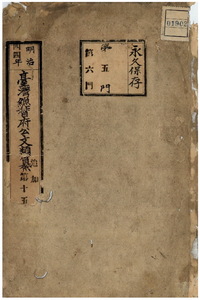 永久保存
第五門
第六門
明治
四年
臺灣總督府公文類纂
追加
第十五
01902